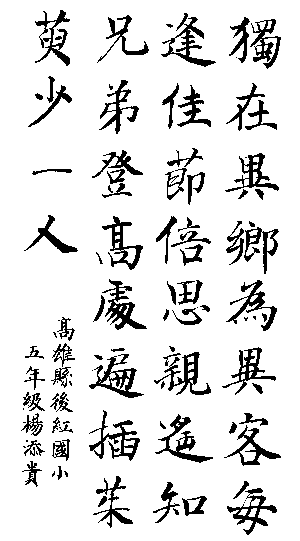 獨在異鄉為異客每
逢佳節倍思親遙知
兄弟登高處遍插茱
萸少一人
高雄縣後紅國小
五年級楊添貴